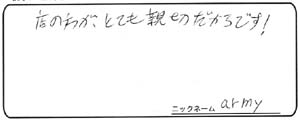 店の方が、とても親切だからです!
ニックネーム army